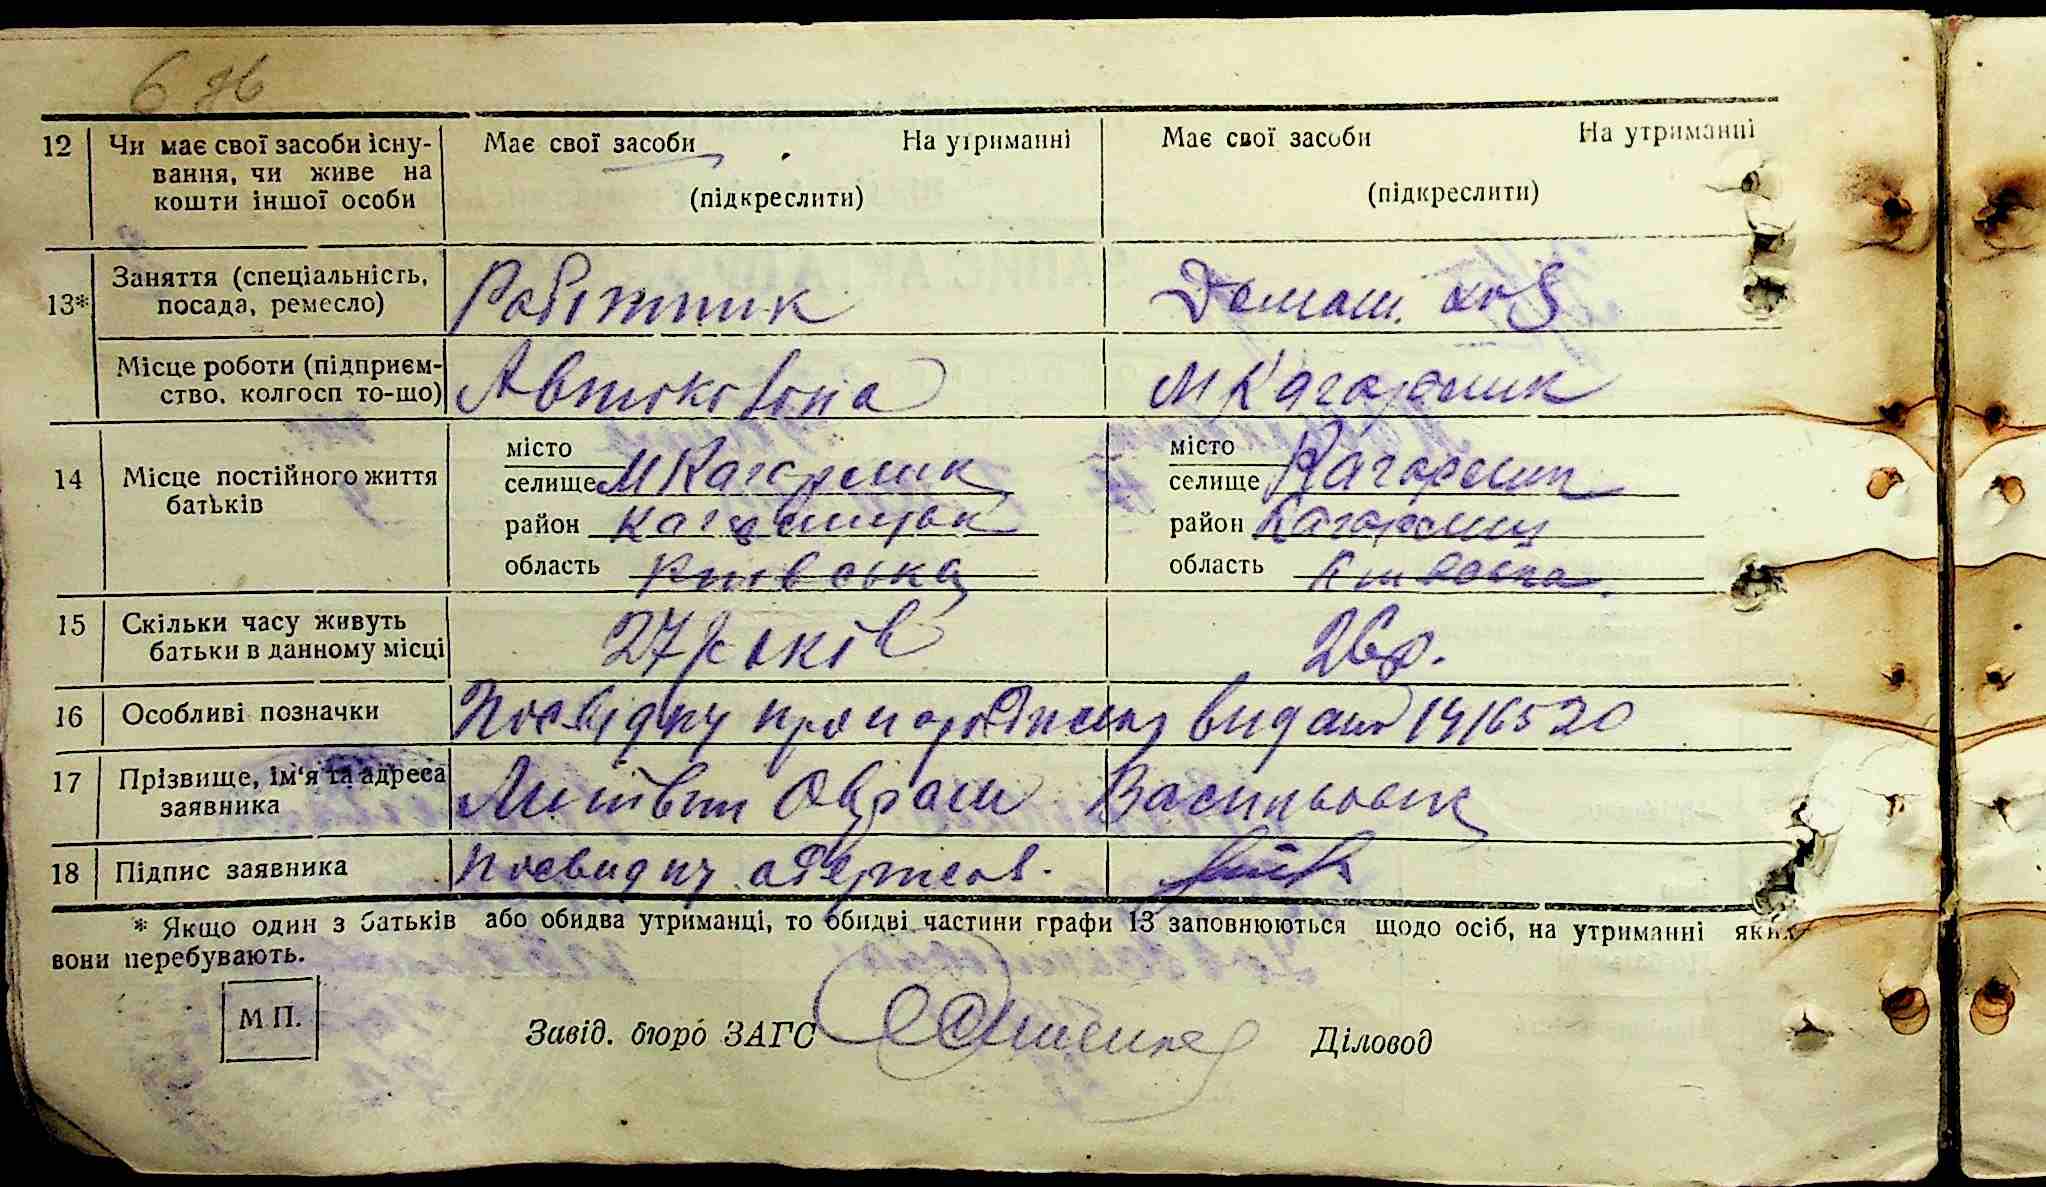 6 зв
12 Чи має свої засоби існу- Має свої засоби На утриманні Має свої засоби На утриманні
вання, чи живе на
кошти іншої особи (підкреслити) (підкреслити)
13* Заняття (спеціальність, посада, ремесло) Робітник Домаш. хоз
Місце роботи (підприєм-
ство, колгосп то-що) Автоколона М Кагарлик
14 Місце постійного життя
батьків
місто
селище М Кагарлик
район Кагарлицьк
область Київська
місто
селище Кагарлик
район Кагарлиц
область Київська
15 Скільки часу живуть
батьки в данному місці 27 років 26 р.
16 Особливі позначки Посвідку про народження видано 1416520
17 Прізвище, ім'я та адреса
заявника Литвин Васильович
18 Підпис заявника Посвидку одержов.
* Якщо один з батьків або обидва утриманці, то обидві частини графи 13 заповнюються щодо осіб, на утриманні яких
вони перебувають.
М П.
Завід. бюро ЗАГС Діловод